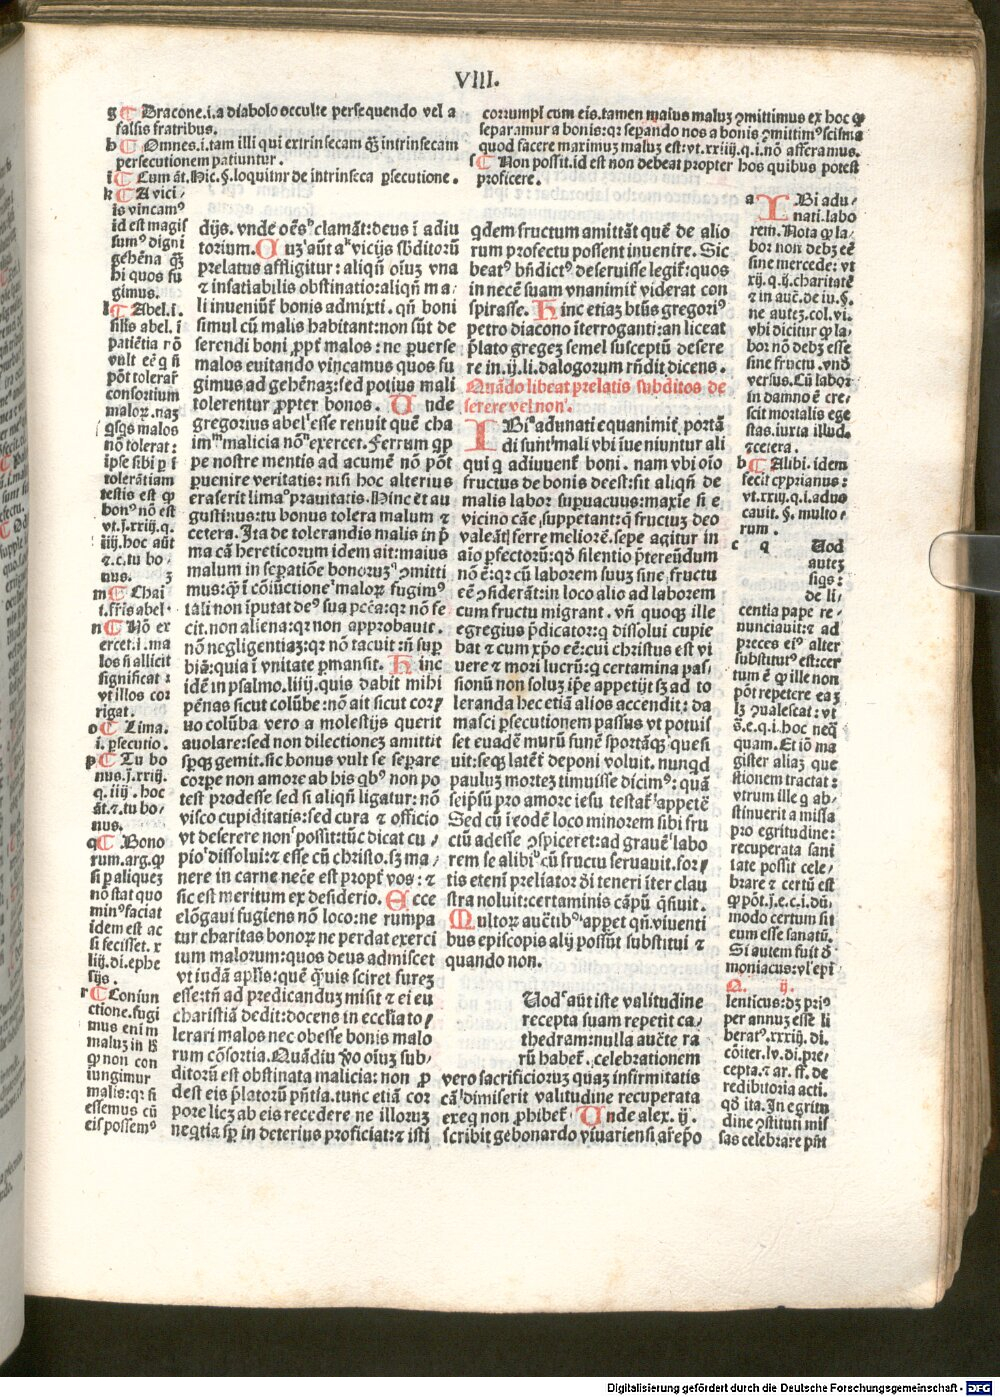 VIII.
g Dracone.i.a diabolo occulte persequendo vel a
falsis fratribus.
h Omnes.i.tam illi qui extrinsecam qͣꝫ intrinsecam
persecutionem patiuntur.
i Cum āt.Hic.§.loquitur de intrinseca ꝑsecutione.
k A vici/
is vincamꝰ
id est magis
sumꝰ digni
gehēna qͣꝫ
hi quos fu
gimus.
l Abel.i.
filis abel. i
patiētia rō
vult eē qn̄
pōt tolerar̄
consortium
maloꝝ.naꝫ
qͥsqꝫ malos
nō tolerat:
ipse sibi ꝑ i
tolerātiam
testis est ꝙ
bonꝰ nō est
vt.j.xxiij.q.
iiij.hoc aūt
⁊.c.tu bo/
nus. 3
m Chai
i.fr̄is abel.
n Nō ex
ercet.i.ma
los n̄ allicit
significat:
vt illos cor
rigat.
o Lima.
i.ꝑsecutio.
p Tu bo
nus.j.xxiij.
q.iiij.hoc
āt.⁊.tu bo/
nus.
q Bono
rum.arg.ꝙ
si ꝑ aliqueꝫ
nō stat quo
minꝰ faciat
idem est ac
si fecisset.x
liij.di.ephe
sijs.
r Coniun
ctione.fugi
mus enim
maluꝫ in
ꝙ non con
iungimur
malis:qꝛ si
essemus cū
eis possemꝰ
dijs. vnde oēs clamāt:deus ī adiu
torium. Quꝫ aūt a vicijs sbditorū
prelatus affligitur: aliqn̄ oīuꝫ vna
⁊ insatiabilis obstinatio:aliqn̄ ma/
li inveniūt bonis admixti. qn̄ boni
simul cū malis habitant:non sūt de
serendi boni ꝓpt malos: ne ꝑuerse
malos euitando vincamus quos fu
gimus ad gehēnaꝫ:sed potius mali
tolerentur ꝓpter bonos. Unde
gregorius abel esse renuit quē cha
im malicia nō exercet. Ferrum qͥp
pe nostre mentis ad acumē nō pōt
puenire veritatis: nisi hoc alterius
eraserit lima prauitatis. Hinc et au
gustinus:tu bonus tolera malum ⁊
cetera. Ita de tolerandis malis in p
ma cā hereticorum idem ait:maius
malum in sepatiōe bonoruꝫ ꝯmitti
mus:qͣꝫ ī cōiūctione maloꝝ fugimꝰ
tali non īputat deꝰ sua pc̄ta:qꝛ nō fe
cit.non aliena:qꝛ non approbauit.
nō negligentiaꝫ:qꝛ nō tacuit:n̄ sup
biā:quia ī vnitate ꝑmansit. Hinc
idē in psalmo.liiij.quis dabit mihi
pēnas sicut colūbe:nō ait sicut coru
uo colūba vero a molestijs querit
auolare:sed non dilectioneꝫ amittit
sꝑqꝫ gemit.sic bonus vult se separe
corꝑe non amore ab his qͥbꝰ non po
test prodesse sed si aliqn̄ ligatur: nō
visco cupiditatis:sed cura ⁊ officio
vt deserere non possit:tūc dicat cu/
pio dissolui:⁊ esse cū christo.sꝫ ma/
nere in carne neces̄e est propt vos: ⁊
sic est meritum ex desiderio. Ecce
elōgaui fugiens nō loco:ne rumpa
tur charitas bonoꝝ ne perdat exerci
tum malorum:quos deus admiscet
vt iudā aplis:quē qͣuis sciret fureꝫ
esse:tn̄ ad predicanduꝫ misit ⁊ ei eu
charistiā dedit:docens in ecclia to/
lerari malos nec obesse bonis malo
rum cōsortia. Quādiu ꝟo oīuꝫ sub/
ditorū est obstinata malicia: non ꝓ
dest eis p̄latorū pn̄tia.tunc etiā cor
pore liceꝫ ab eis recedere ne illoruꝫ
neqͥtia sꝑ in deterius proficiat:⁊ isti
qdem fructum amittāt quē de alio
rum profectu possent inuenire. Sic
beatꝰ bn̄dictꝰ deseruisse legit̄:quos
in necē suam vnanimit viderat con
spirasse. Hinc etiaꝫ btūs gregoriꝰ
petro diacono īterroganti:an liceat
p̄lato gregeꝫ semel susceptū desere
re in.ij.li.dalogorum rn̄dit dicens.
Quādo libeat prelatis subditos de
serere vel non.
IBi adunati equanimit portā
di sunt mali vbi īue niuntur ali
qui q adiuuent boni. nam vbi oīo
fructus de bonis deest:fit aliqn̄ de
malis labor supuacuus:maxie si e
vicino cāe suppetant:q fructuꝫ deo
valeāt ferre meliorē.sepe agitur in
aīo ꝑfectorū:qd silentio p̄tereūdum
nō ē:qꝛ cū laborem suuꝫ sine fructu
eē ꝯsiderāt:in loco alio ad laborem
cum fructu migrant. vn̄ quoqꝫ ille
egregius p̄dicator:q dissolui cupie
bat ⁊ cum xp̄o eē:cui christus est vi
uere ⁊ mori lucrū:q certamina pas/
sionū non soluꝫ ipe appetijt sꝫ ad to
leranda hec etiā alios accendit: da
masci ꝑsecutionem passus vt potuis
set euadē murū funē sportāqꝫ quesi
uit:seqꝫ latēt deponi voluit. nunqd
pauluꝫ morteꝫ timuisse dicimꝰ: quā
seipsū pro amore iesu testat appetē
Sed cū ī eodē loco minorem sibi fru
ctū adesse ꝯspiceret:ad grauē labo
rem se alibi cū fructu seruauit.for/
tis etenī preliator dī teneri īter clau
stra noluit:certaminis cāpū qͣsiuit.
Multoꝝ auc̄tibꝰ appet qn̄ viuenti
bus episcopis alij possūt substitui ⁊
quando non.
Uod aūt iste valitudine
recepta suam repetit ca/
thedram:nulla auc̄te ra
rū habet. celebrationem
vero sacrificioruꝫ quaꝫ infirmitatis
cā dimiserit valitudine recuperata
exeqͥ non ꝓhibet Unde alex. ij.
scribit gebonardo viuariensi ar̄epo
corrumpī cum eis.tamen maius maluꝫ ꝯmittimus ex hoc ꝙ
separamur a bonis:qꝛ sepando nos a bonis ꝯmittimꝰ scisma
quod facere maximuꝫ maluꝫ est:vt.xxiiij.q.i.nō afferamus.
s Non possit.id est non debeat propter hos quibus potest
proficere.
a IBi adu/
nati.labo
rem.Nota ꝙ la/
bor non debꝫ eē
sine mercede: vt
xij.q.ij.charitatē
⁊ in auc̄.de iu.§.
ne auteꝫ.col.vi.
vbi dicitur ꝙ la/
bor nō debꝫ esse
sine fructu.vnd
versus.Cū labor
in damno ē cre/
scit mortalis ege
stas.iuxta illud.
⁊cetera.
b Alibi.idem
fecit cyprianus:
vt.xxiij.q.i.aduo
cauit.§.multo/
rum.
c q Uod
auteꝫ
sige:
de li/
centia pape re/
nunciauit:⁊ ad
preces eiꝰ alter
substitutꝰ est:cer
tum ē ꝙ ille non
pōt repetere eaꝫ
lꝫ ꝯualescat: vt
s.e.q.i.hoc neqͣ
quam.Et iō ma
gister aliaꝫ que
stionem tractat:
vtrum ille q ab/
stinuerit a missa
pro egritudine:
recuperata sani
tate possit cele/
brare ⁊ certū est
ꝙ pōt.j.e.c.i.dū/
modo certum sit
eum esse sanatū.
Si autem fuit d
moniacus:vl epi
Q. ij.
lenticus:dꝫ priꝰ
per annuꝫ esse li
beratꝰ.xxxiij.di.
cōiter.lv.di.pre/
cepta.⁊ ar. ff. de
redibitoria acti.
qd ita.In egritu
dine ꝯstituti mis
sas celebrare pn̄t
Digitalisierung gefördert durch die Deutsche Forschungsgemeinschaft - DFG